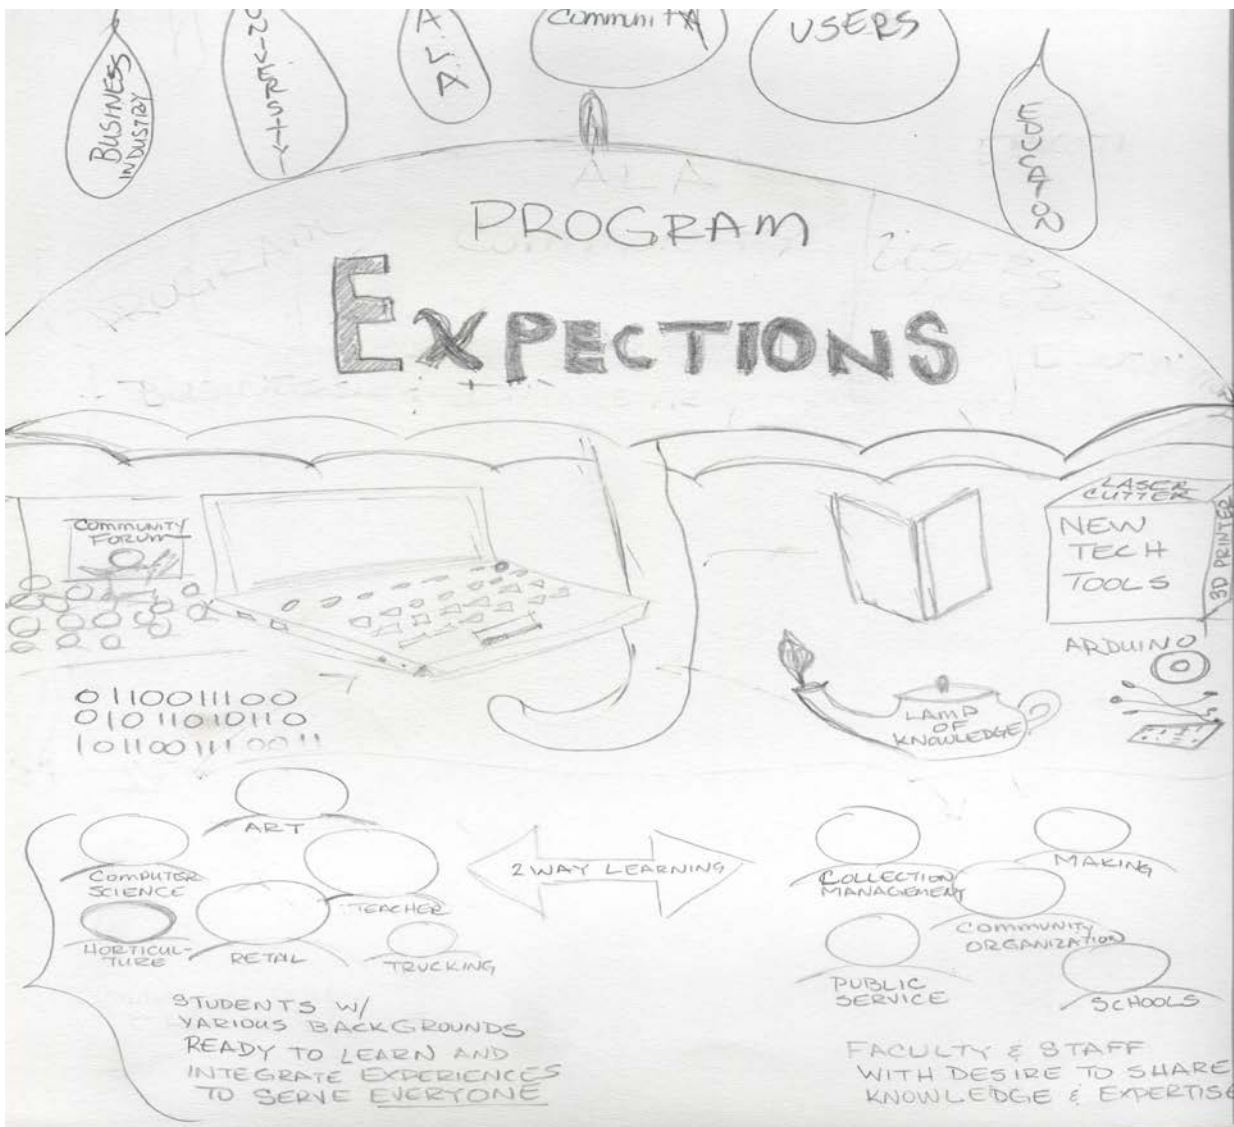 BUSINESS
INDUSTRY
ALA
COMMUNITY
USERS
EDUCATON
ALA
PROGRAM
PROGRAM
USERS
EXPECTIONS
BUSINESS
COMMUNITY
FORUM
LASER
CUTTER
NEW
TECH
TOOLS
3D PRINTER
ARDUINO
LAMP
OF
KNOWLEDGE
0110011100
01011010110
1011001110011
ART
COMPUTER
SCIENCE
TEACHER
HORTICUL-
TURE
RETAIL
TRUCKING
2 WAY LEARNING
COLLECTION
MANAGEMENT
MAKING
COMMUNITY
ORGANIZATION
PUBLIC
SERVICE
SCHOOLS
STUDENTS W/
VARIOUS BACKGROUNDS
READY TO LEARN AND
INTEGRATE EXPERIENCES
TO SERVE EVERYONE
FACULTY & STAFF
WITH DESIRE TO SHARE
KNOWLEDGE & EXPERTISE